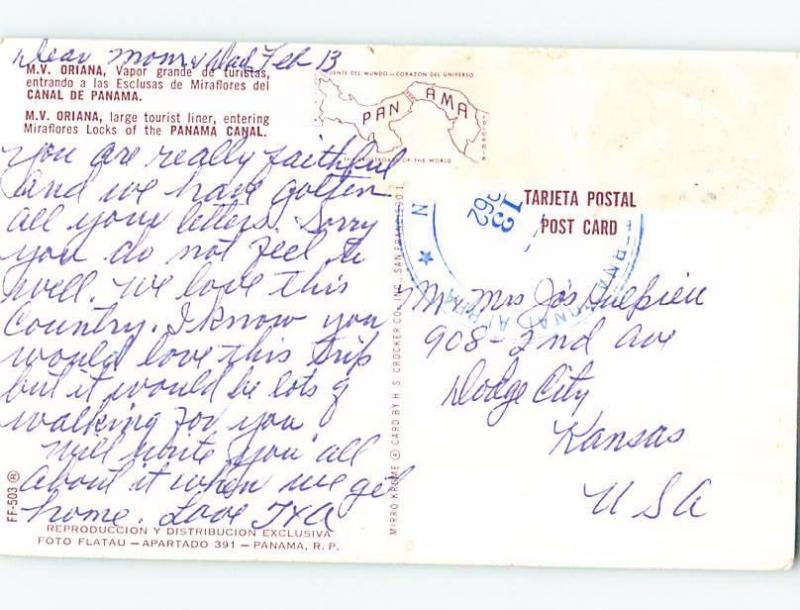 Dear Mom & Dad Feb 13
M.V. ORIANA, Vapor grande de turistas,
entrando a las Esclusas de Miraflores del
CANAL DE PANAMA.
M.V. ORIANA, large tourist liner, entering
Miraflores Locks of the PANAMA CANAL.
you are really faithful
and we have gotten
all your letters. Sorry
you do not feel to
well. We love this
Country. I know you
would love this trip
but it would be lots of
walking for you
will write you all
about it when we get
home. Love
FF-503 ®
REPRODUCCION Y DISTRIBUCION EXCLUSIVA
FOTO FLATAU — APARTADO 391 — PANAMA, R. P.
MIRRO-KROME © CARD BY H. S. CROCKER CO., INC., SAN FRANCISCO 1,
PUENTE DEL MUNDO — CORAZON DEL UNIVERSO
PAN AMA
THE CROSSROADS OF THE WORLD
13
TARJETA POSTAL
POST CARD
Mr Mrs Jos
908 - 2nd Ave
Dodge City
Kansas
USA